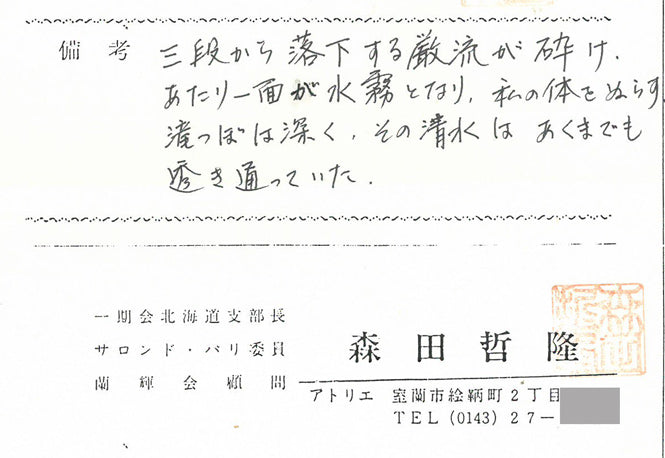 備考 三段から落下する厳流が砕け、
あたり一面が水霧となり、私の体をぬらす。
滝つぼは深く、その清水はあくまでも
透き通っていた。
一期会北海道支部長
サロンド・パリ委員
蘭輝会顧問
森田哲隆
アトリエ 室蘭市絵鞆町2丁目
TEL (0143) 27-